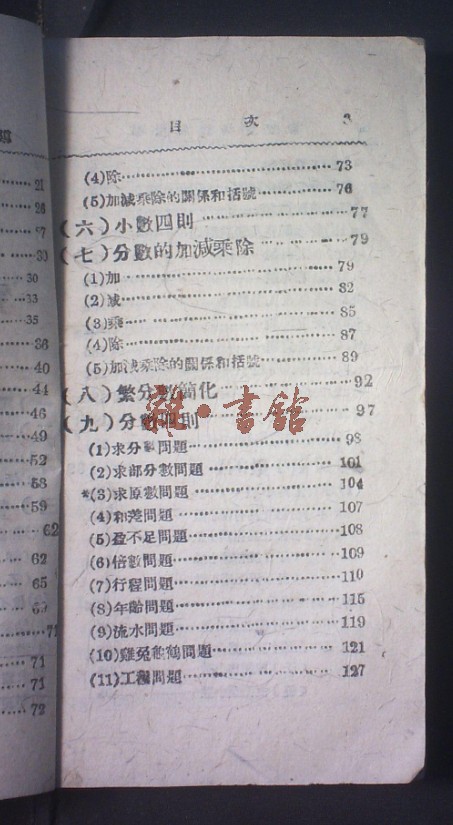 目 次 3
21
26
30
30
33
35
36
40
44
46
49
52
58
59
62
62
65
69
71
71
71
72
(4)除 73
(5)加減乘除的關係和括號 76
(六)小數四則 77
(七)分數的加減乘除 79
(1)加 79
(2)减 82
(3)乘 85
(4)除 87
(5)加減乘除的關係和括號 89
(八)繁分數簡化 92
(九)分數四則 97
(1)求分數問題 98
(2)求部分數問題 101
*(3)求原數問題 104
(4)和差問題 107
(5)盈不足問題 108
(6)倍數問題 109
(7)行程問題 110
(8)年齡問題 115
(9)流水問題 119
(10)雞兔龜鶴問題 121
(11)工程問題 127
·書館